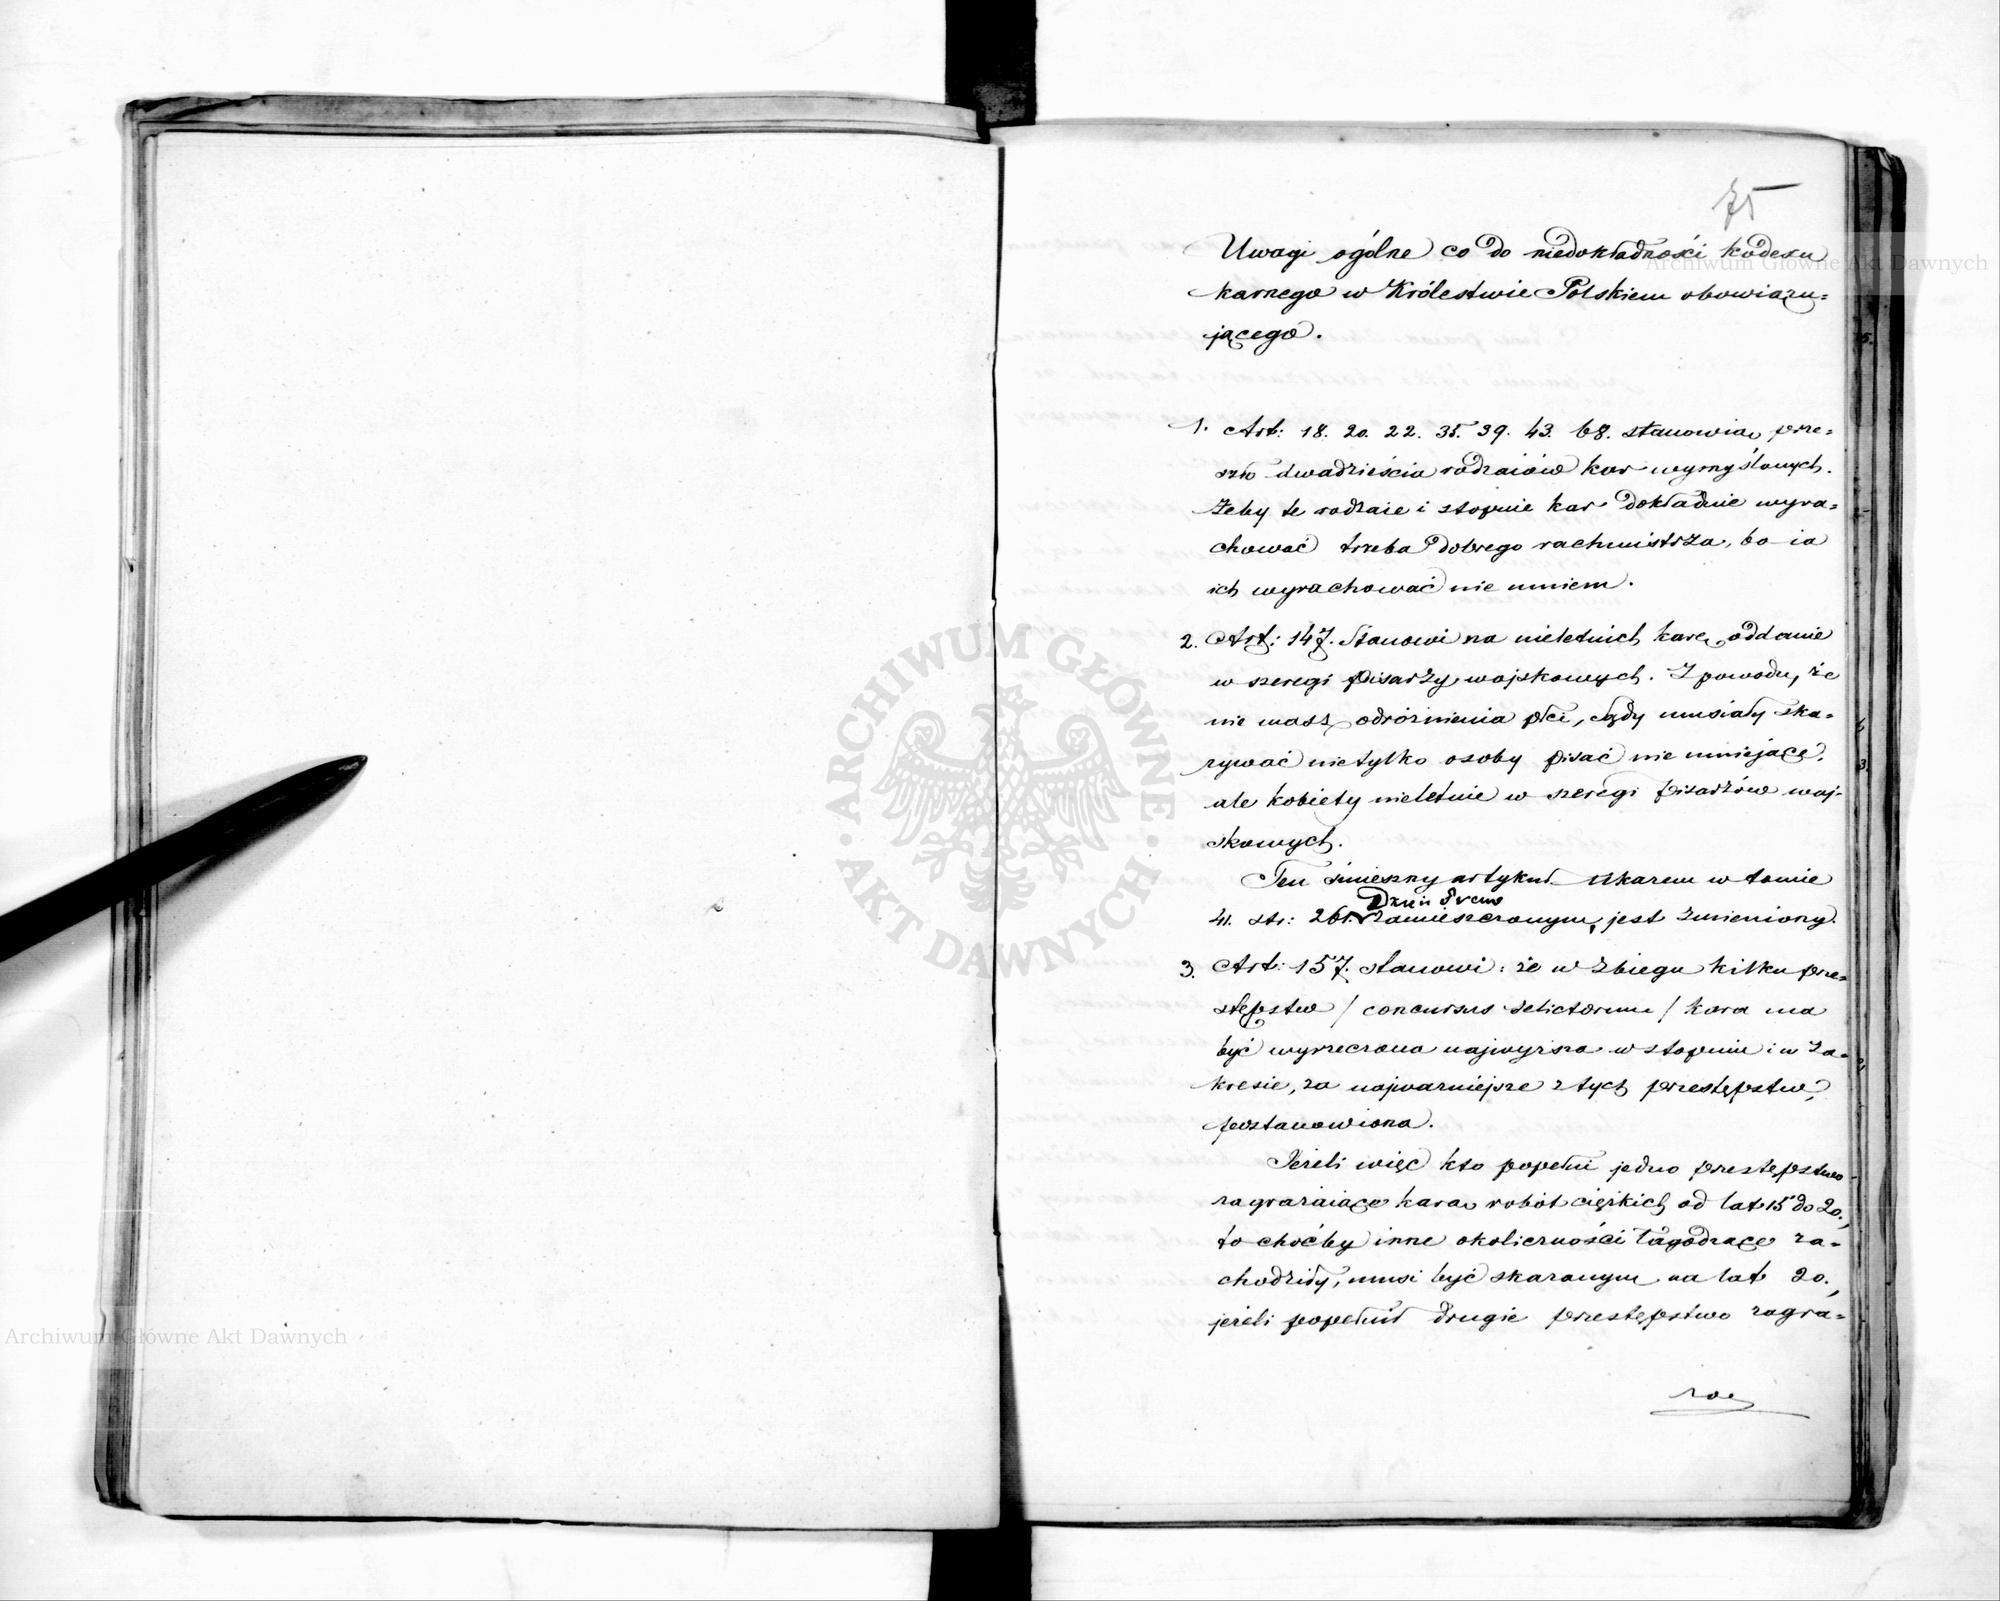 75
Uwagi ogólne co do niedokładności kodexu
karnego w Królestwie Polskiem obowiązu=
jącego.
1. Art: 18. 20. 22. 35. 39. 43. 68. stanowią prze=
szło dwadzieścia rodzaiów kar wymyślonych.
Żeby te rodzaie i stopnie kar dokładnie wyra=
chować trzeba dobrego rachmistrza, bo ia
ich wyrachować nie umiem.
2. Art: 147. Stanowi na nieletnich karę, oddanie
w szeregi pisarzy wojskowych. Z powodu, że
nie masz odróżnienia płci, Sądy musiały ska=
zywać nietylko osoby pisać nie umiejące,
ale kobiety nieletnie w szeregi pisarzów woj=
skowych.
Ten śmieszny artykuł Ukazem w tomie
Dzien Praw
41. str: 261. zamieszczonym, jest zmieniony.
3. Art: 157. stanowi: że w zbiegu kilku prze=
stępstw / concursus delictorum / kara ma
być wyrzeczona najwyższa w stopniu i w za=
kresie, za najważniejsze z tych przestępstw,
postanowiona.
Jeżeli więc kto popełni jedno przestępstwo
zagrażaiące karą robót ciężkich od lat 15 do 20.,
to choćby inne okoliczności łagodzące za=
chodziły, musi być skazanym na lat 20.,
jeżeli popełnił drugie przestępstwo zagra=
Archiwum Główne Akt Dawnych
Archiwum Główne Akt Dawnych
ARCHIWUM GŁÓWNE · AKT DAWNYCH ·